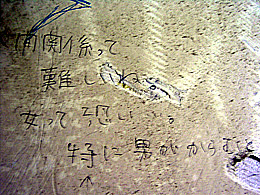 間関係って
難しいね。
女って恐い
特に男がからむと
↑